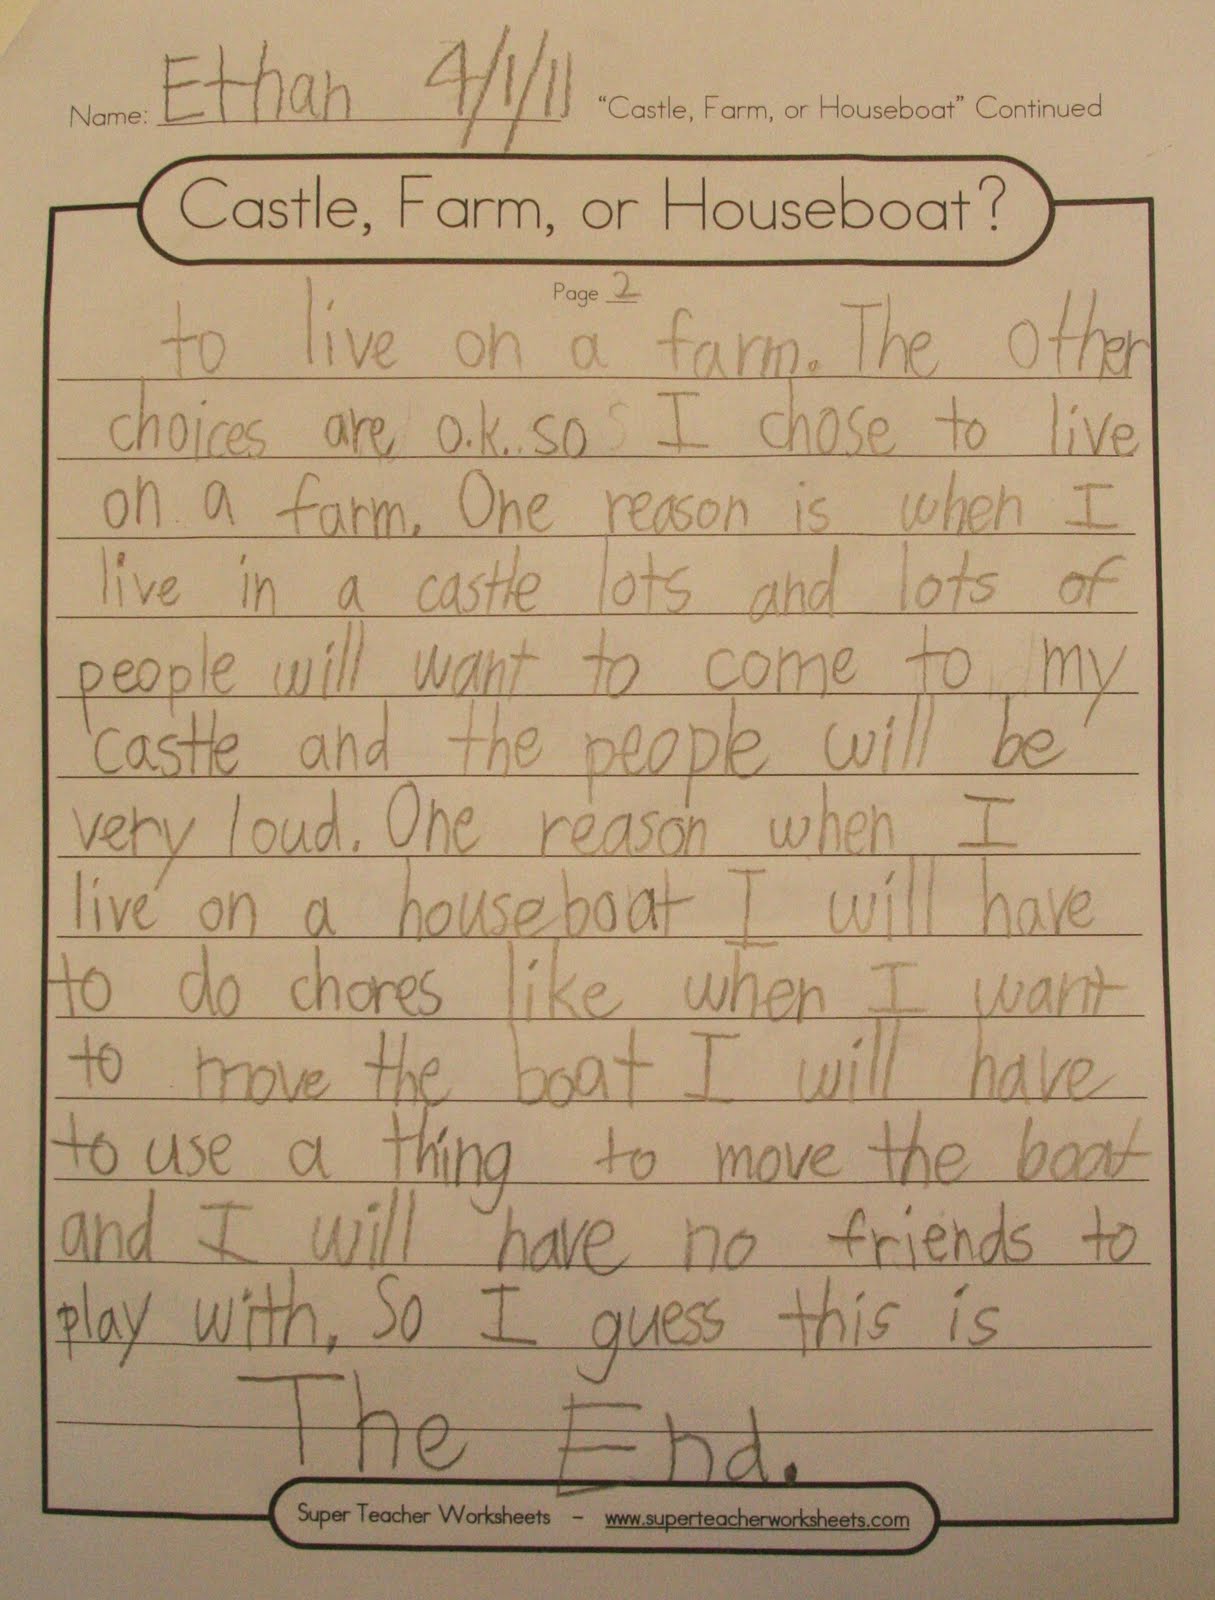 Name: Ethan 4/1/11 "Castle, Farm, or Houseboat" Continued
Castle, Farm, or Houseboat?
Page 2
to live on a farm. The other
choices are o.k.. so I chose to live
on a farm. One reason is when I
live in a castle lots and lots of
people will want to come to my
castle and the people will be
very loud. One reason when I
live on a houseboat I will have
to do chores like when I want
to move the boat I will have
to use a thing to move the boat
and I will have no friends to
play with. So I guess this is
The End.
Super Teacher Worksheets - www.superteacherworksheets.com